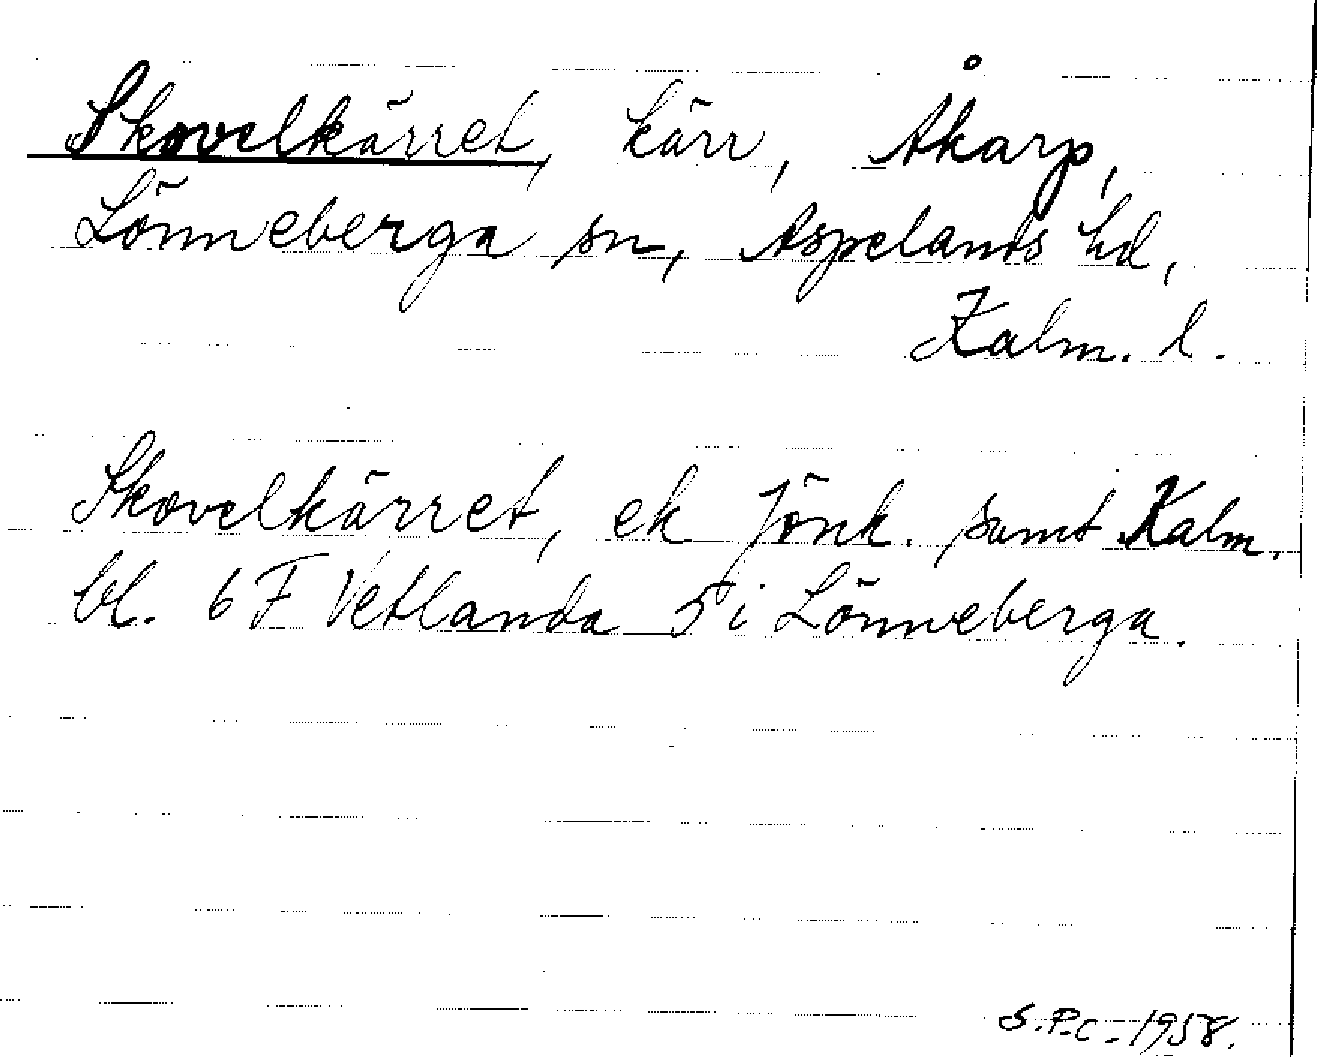 Skovelkärret, kärr, Åkarp,
Lönneberga sn, Aspelands hd,
Kalm. l.
Skovelkärret, ek Jönk. samt Kalm.
bl. 6 F Vetlanda 5 i Lönneberga.
S.P.C. 1958.